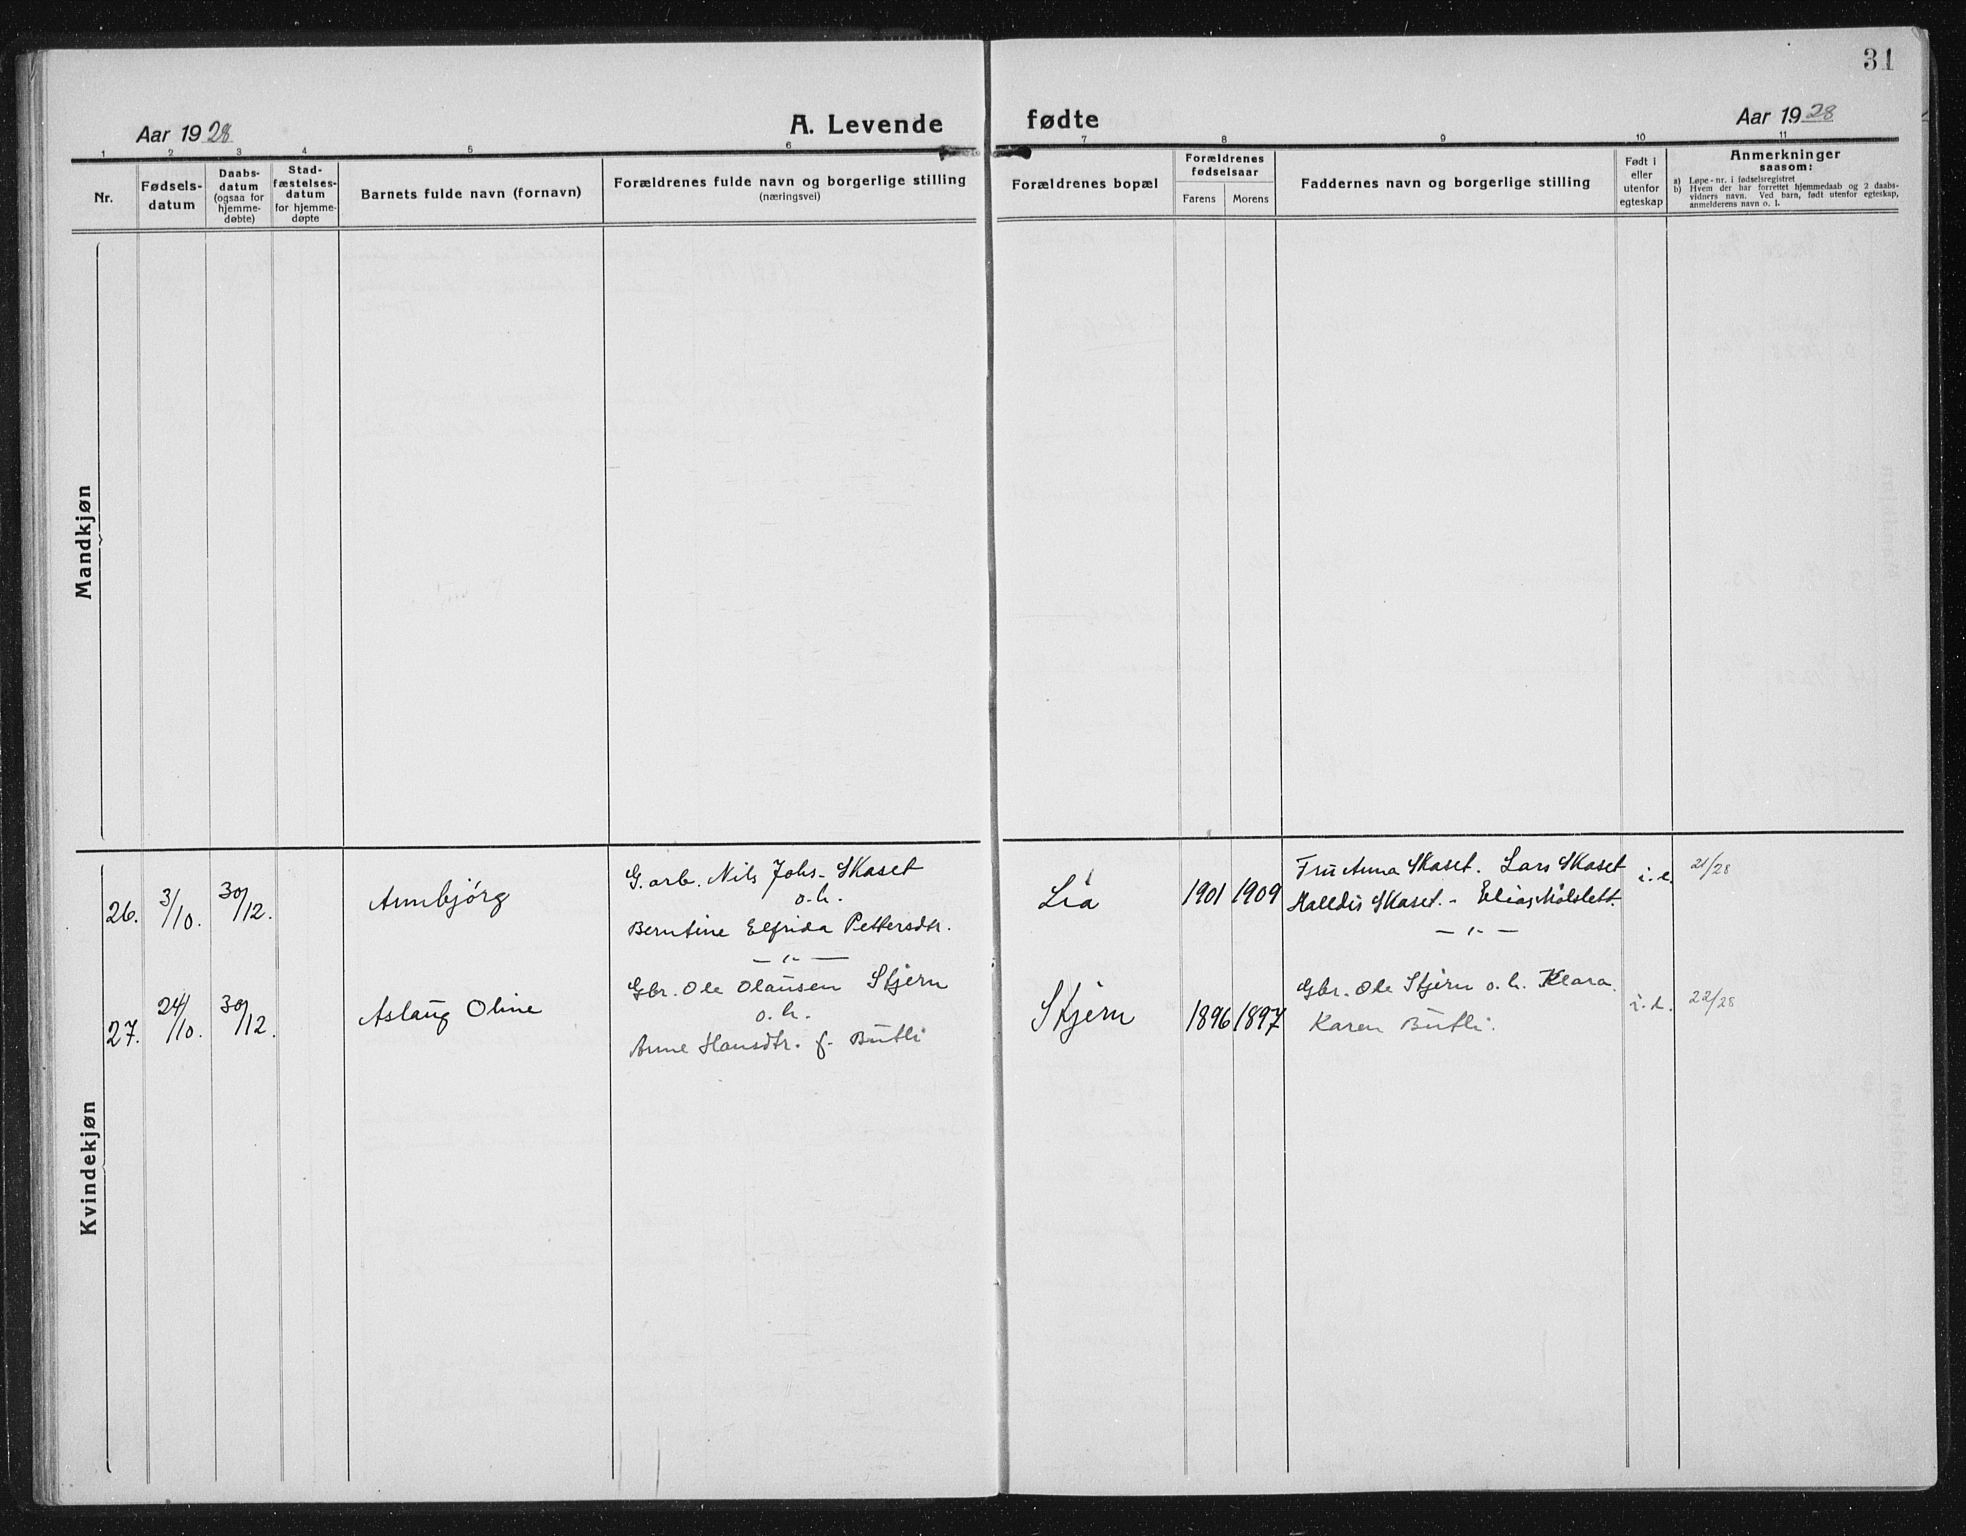 31
Aar 1928
A. Levende fødte
Aar 1928
1 2 3 4 5 6 7 8 9 10 11
Nr.
Fødsels-
datum
Daabs-
datum
(ogsaa for
hjemme-
døbte)
Stad-
fæstelses-
datum
for hjemme-
døpte
Barnets fulde navn (fornavn)
Forældrenes fulde navn og borgerlige stilling
(næringsvei)
Forældrenes bopæl
Forældrenes
fødselsaar
Farens Morens
Faddernes navn og borgerlige stilling
Født i
eller
utenfor
egteskap
Anmerkninger
saasom:
a) Løpe-nr. i fødselsregistret
b) Hvem der har forrettet hjemmedaab og 2 daabs-
vidners navn. Ved barn, født utenfor egteskap,
anmelderens navn o. l.
Mandkjøn
Kvindekjøn
26. 3/10. 30/12. Annbjórg
G. arb. Nils Johs. Skaset
o. h.
Berntine Elfrida Pettersdtr.
Lia 1901 1909
Fru Anna Skaset. Lars Skaset
Halldis Skaset. - Elias Mólslett.
i. e. 21/28
— „ —
— „ —
27. 24/10. 30/12. Aslaug Oline
Gbr. Ole Olausen Stjern
o. h.
Anne Hansdtr. f. Butli
Stjern 1896 1897
Gbr. Ole Stjern o. h. Klara.
Karen Butli.
i. e. 22/28